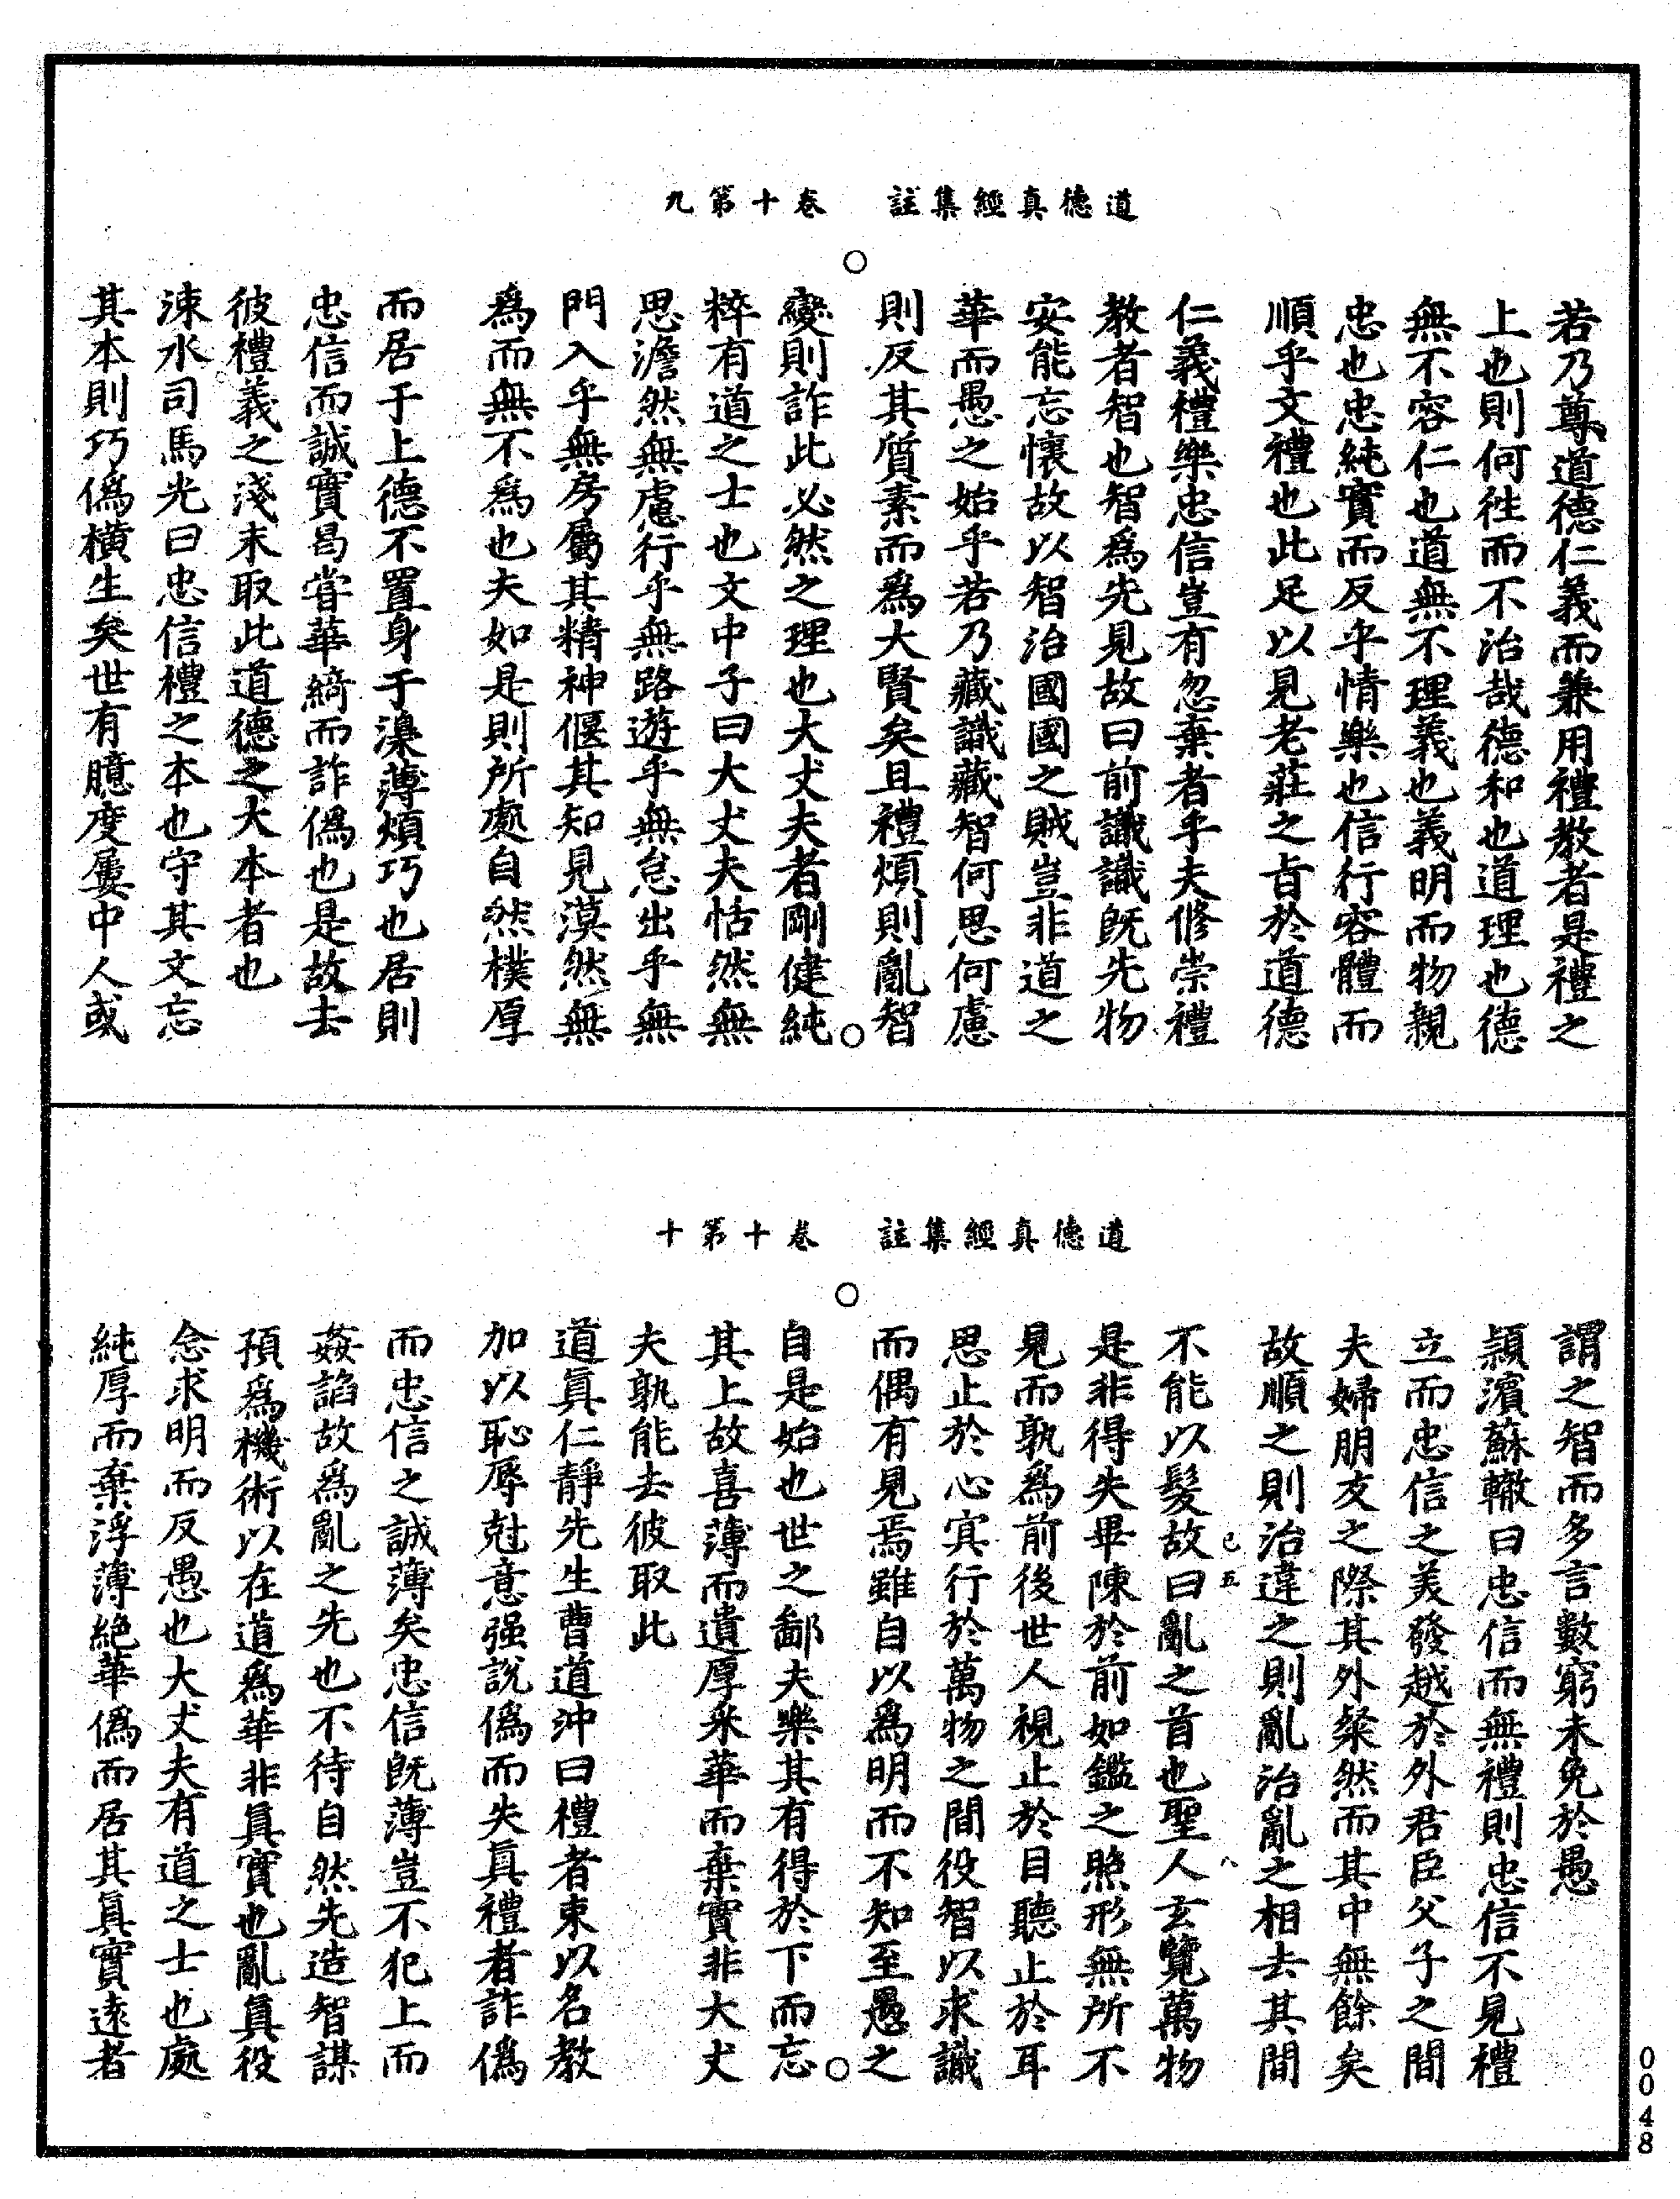 道德真經集註　卷十第九
若乃尊道德仁義而兼用禮教者是禮之
上也則何徃而不治哉德和也道理也德
無不容仁也道無不理義也義明而物親
忠也忠純實而反乎情樂也信行容體而
順乎文禮也此足以見老莊之㫖於道德
仁義禮樂忠信豈有忽棄者乎夫修崇禮
教者智也智爲先見故曰前識識旣先物
安能忘懷故以智治國國之賊豈非道之
華而愚之始乎若乃藏識藏智何思何慮
則反其質素而爲大賢矣且禮煩則亂智
變則詐此必然之理也大丈夫者剛健純
粹有道之士也文中子曰大丈夫恬然無
思澹然無慮行乎無路遊乎無怠出乎無
門入乎無房屬其精神偃其知見漠然無
爲而無不爲也夫如是則所處自然樸厚
而居于上德不置身于澆薄煩巧也居則
忠信而誠實曷甞華綺而詐僞也是故去
彼禮義之淺末取此道德之大本者也
涑水司馬光曰忠信禮之本也守其文忘
其本則巧僞橫生矣世有臆度屢中人或
道德真經集註　卷十第十
謂之智而多言數窮未免於愚
潁濱蘇轍曰忠信而無禮則忠信不見禮
立而忠信之美發越於外君臣父子之間
夫婦朋友之際其外粲然而其中無餘矣
故順之則治違之則亂治亂之相去其間
己五　八
不能以髮故曰亂之首也聖人玄覽萬物
是非得失畢陳於前如鑑之照形無所不
見而孰爲前後世人視止於目聽止於耳
思止於心㝠行於萬物之間役智以求識
而偶有見焉雖自以爲明而不知至愚之
自是始也世之鄙夫樂其有得於下而忘
其上故喜薄而遺厚采華而棄實非大丈
夫孰能去彼取此
道眞仁靜先生曹道沖曰禮者束以名教
加以恥辱尅意强說僞而失眞禮者詐僞
而忠信之誠薄矣忠信旣薄豈不犯上而
姦諂故爲亂之先也不待自然先造智謀
預爲機術以在道爲華非眞實也亂眞役
念求明而反愚也大丈夫有道之士也處
純厚而棄浮薄絶華僞而居其眞實遠者
0048